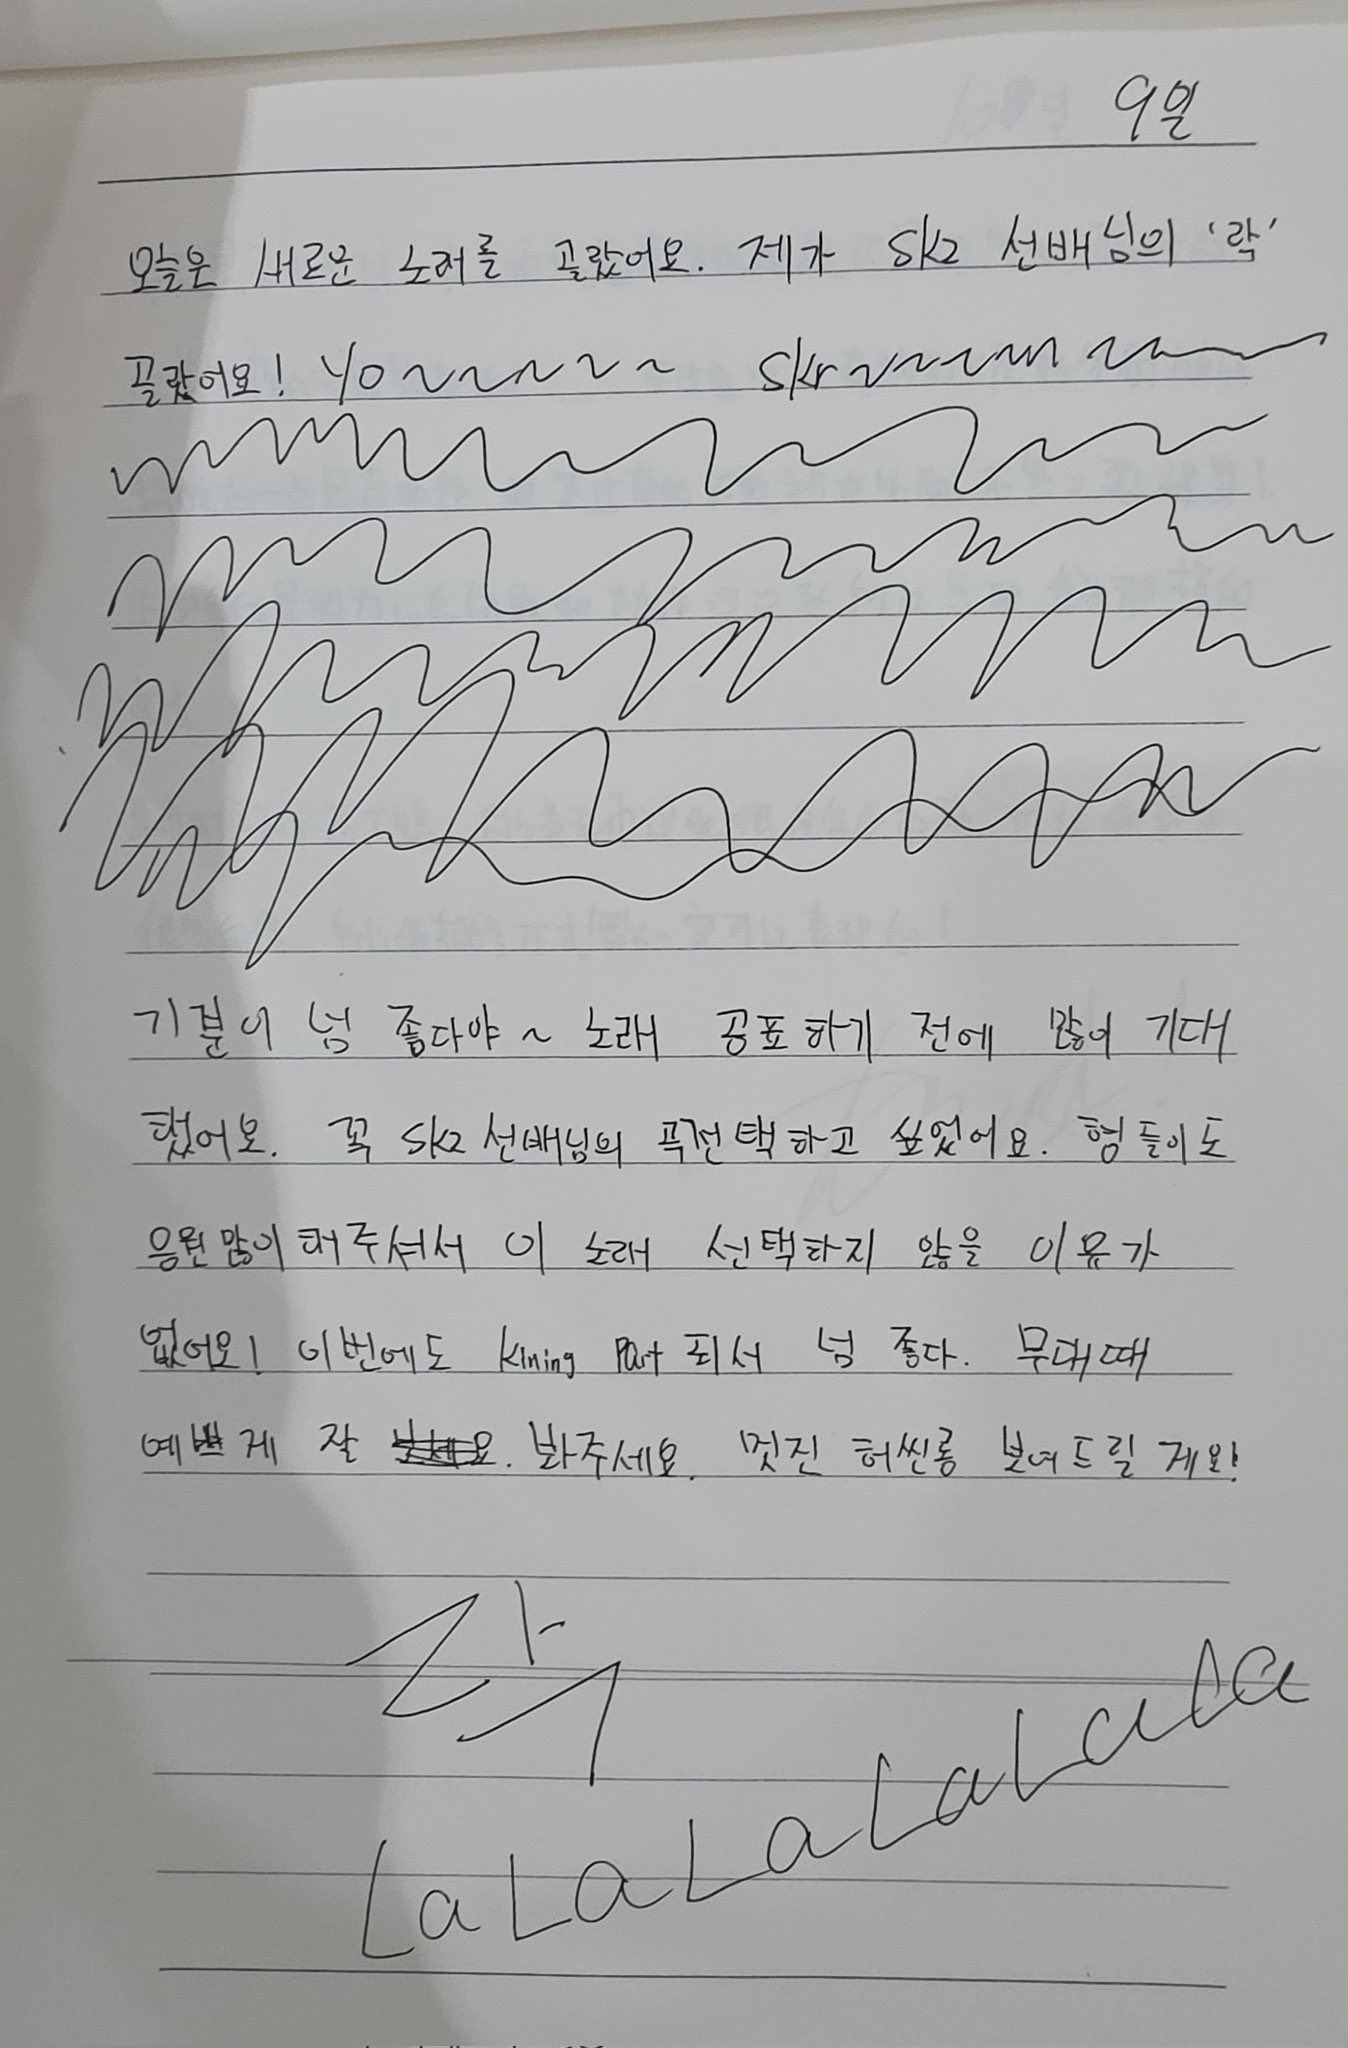 9일
오늘은 새로운 노래를 골랐어요. 제가 SKZ 선배님의 '락'
골랐어요! YO~~~~~ Skr~~~~~
기분이 넘 좋다야~ 노래 공표하기 전에 많이 기대
했어요. 꼭 SKZ 선배님의 곡 선택하고 싶었어요. 형들이도
응원 많이 해주셔서 이 노래 선택하지 않을 이유가
없어요! 이번에도 Kining Part 되서 넘 좋다. 무대때
예쁘게 잘 봐주세요. 멋진 허씬롱 보여드릴게요!
락
La La La La La La La